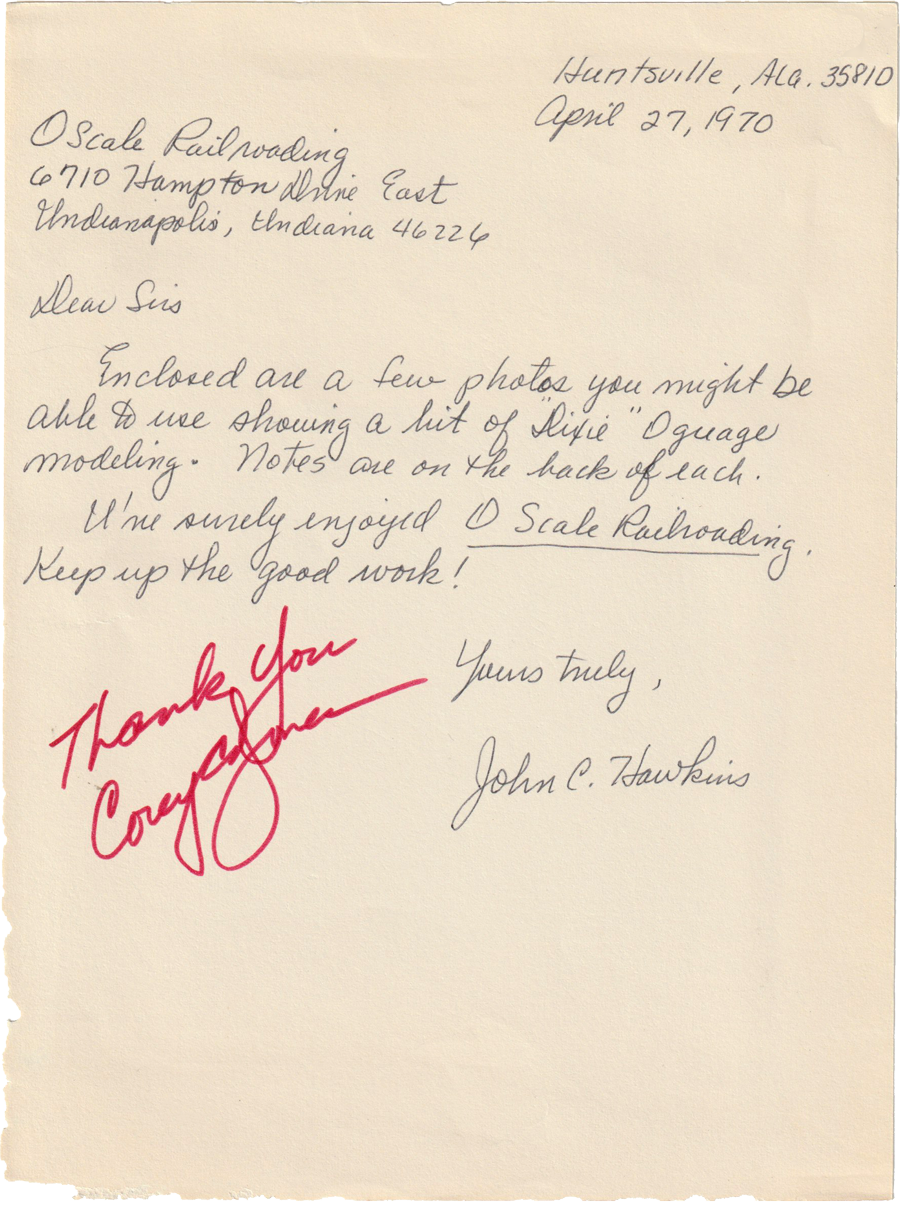 Huntsville, Ala. 35810
April 27, 1970
O Scale Railroading
6710 Hampton Drive East
Indianapolis, Indiana 46226
Dear Sirs
Enclosed are a few photos you might be
able to use showing a bit of "Dixie" O guage
modeling. Notes are on the back of each.
I've surely enjoyed O Scale Railroading.
Keep up the good work!
Yours truly,
John C. Hawkins
Thank You
Corey